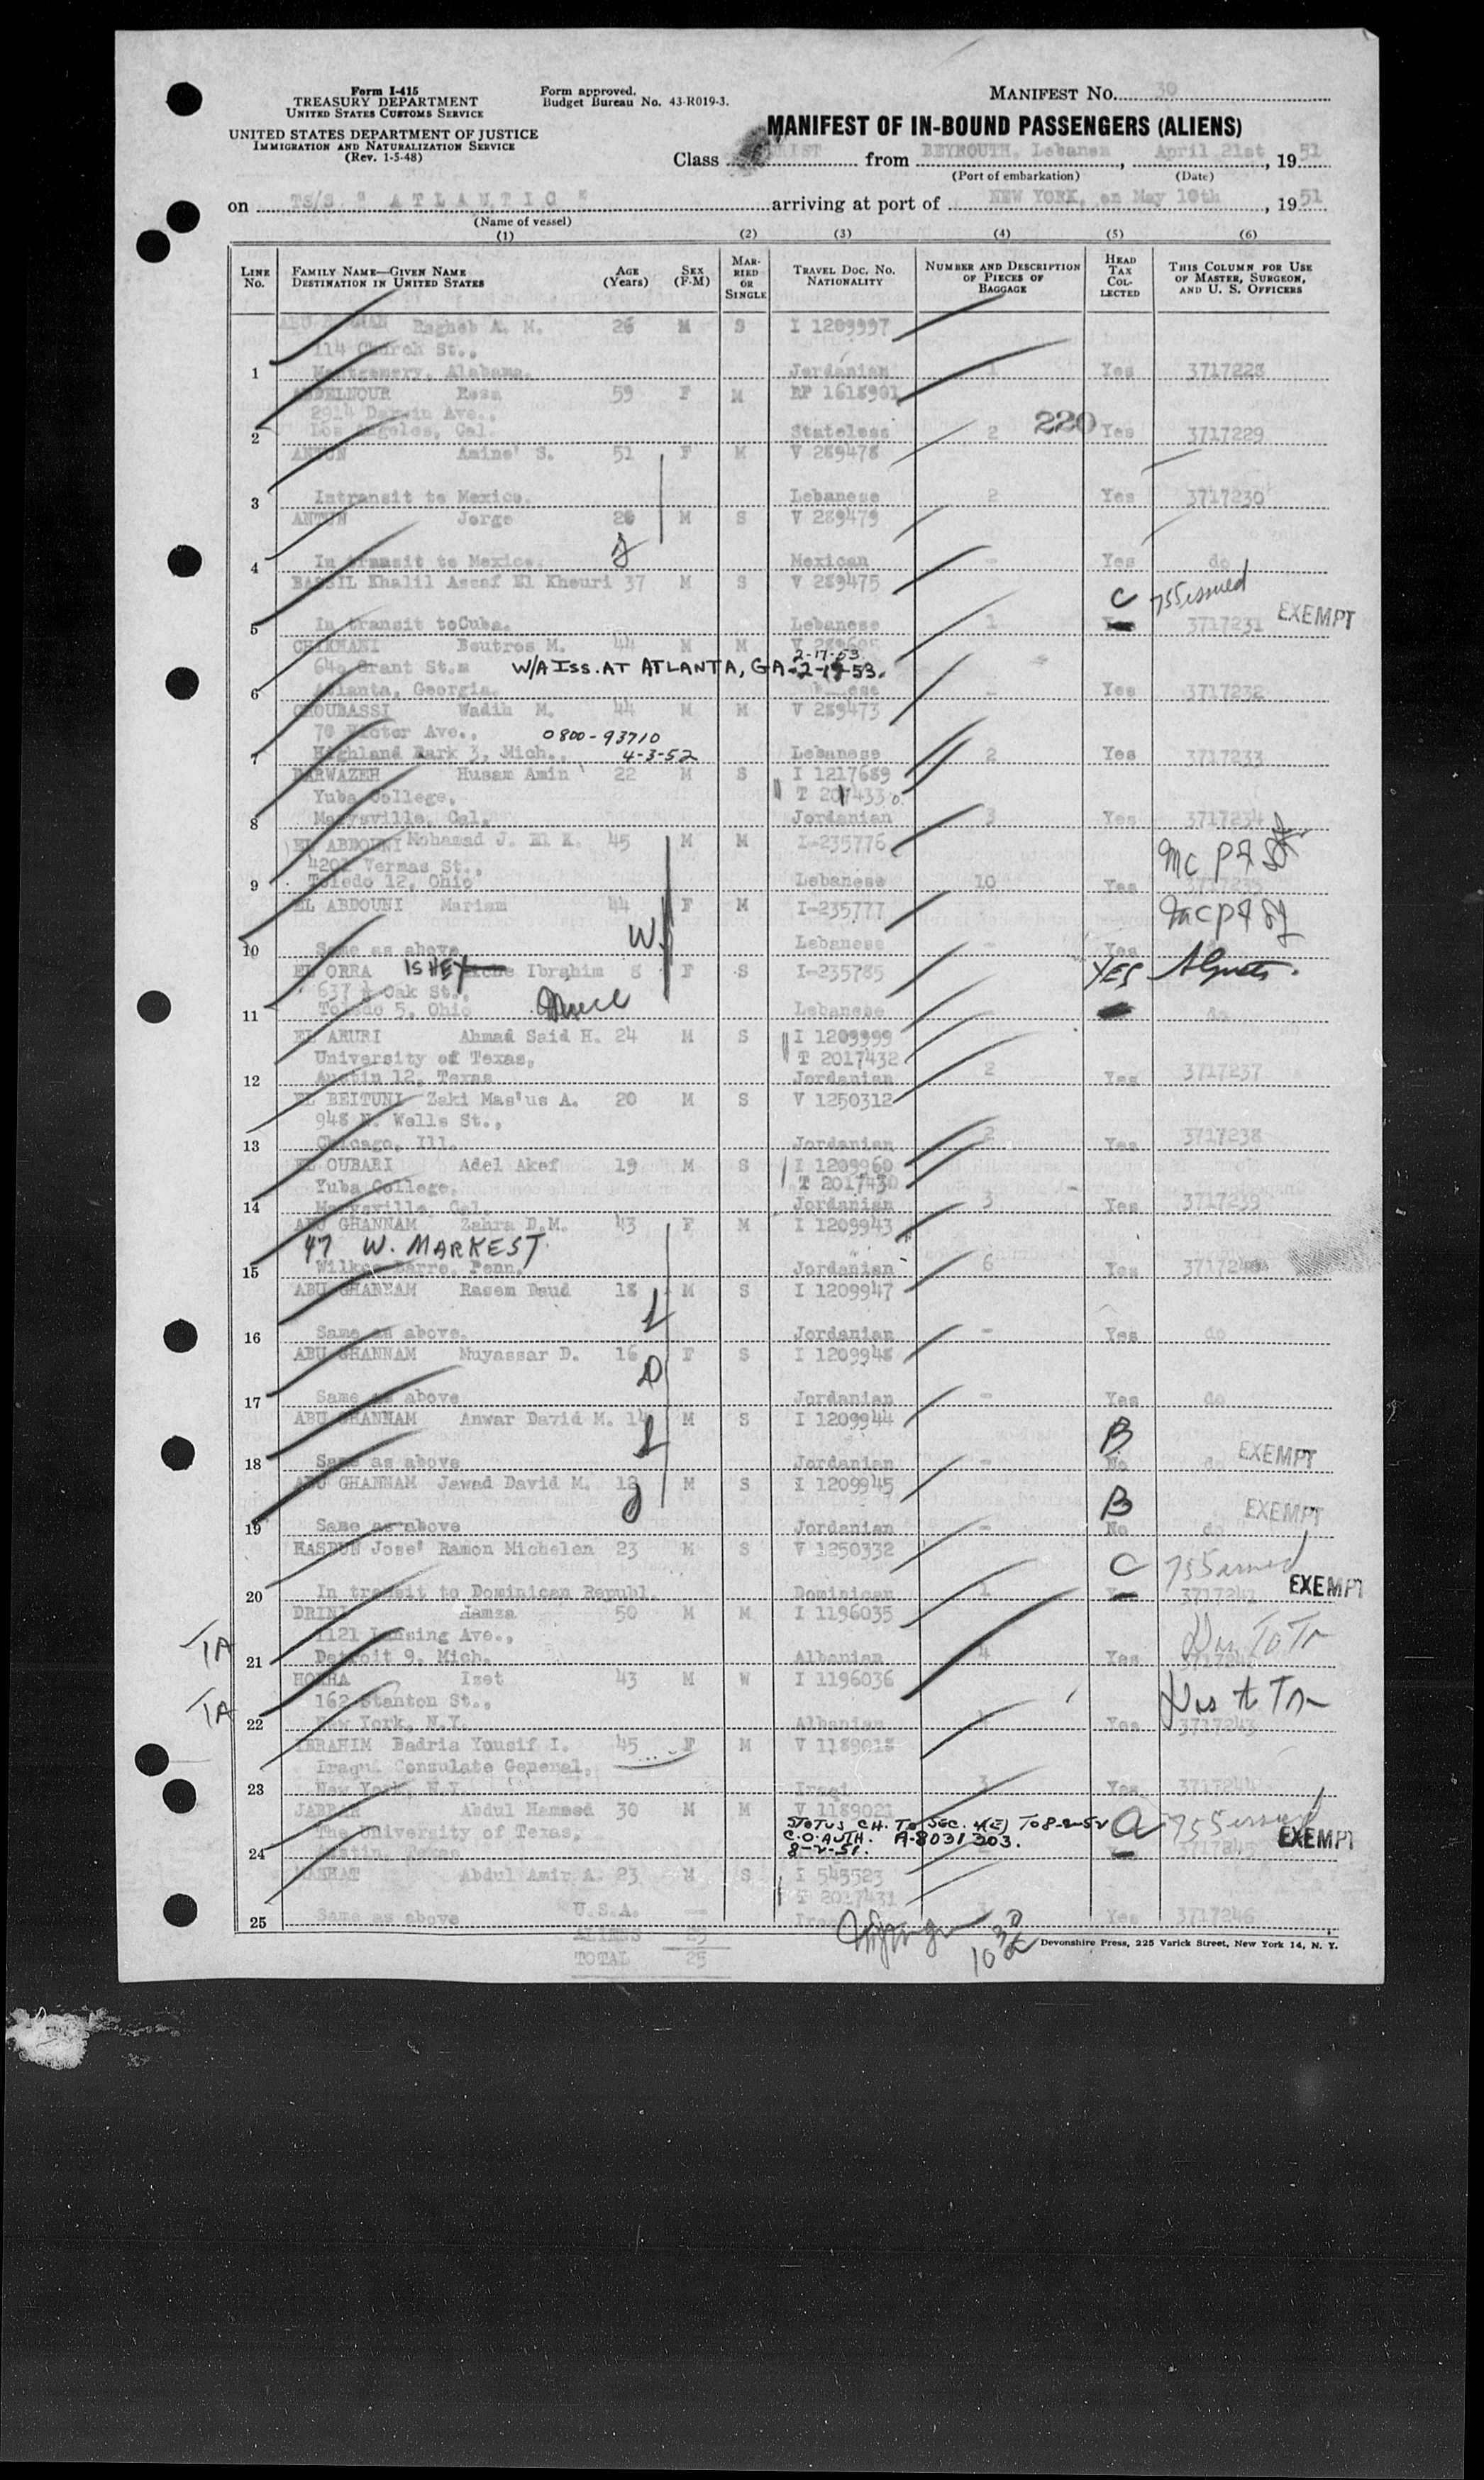 Form I-415
TREASURY DEPARTMENT
UNITED STATES CUSTOMS SERVICE
UNITED STATES DEPARTMENT OF JUSTICE
IMMIGRATION AND NATURALIZATION SERVICE
(Rev. 1-5-48)
Form approved.
Budget Bureau No. 43-R019-3.
MANIFEST NO. 30
MANIFEST OF IN-BOUND PASSENGERS (ALIENS)
Class from BEYROUTH, Lebanon, April 21st, 1951
(Port of embarkation) (Date)
on TS/S " A T L A N T I C " arriving at port of NEW YORK, on May 10th, 1951
(Name of vessel)
(1) (2) (3) (4) (5) (6)
LINE No. FAMILY NAME—GIVEN NAME DESTINATION IN UNITED STATES AGE (Years) SEX (F-M) MARRIED OR SINGLE TRAVEL DOC. NO. NATIONALITY NUMBER AND DESCRIPTION OF PIECES OF BAGGAGE HEAD TAX COLLECTED THIS COLUMN FOR USE OF MASTER, SURGEON, AND U. S. OFFICERS
ABU Ragheb A. M. 26 M S I 1209997
114 Church St.,
1 Montgomery, Alabama. Jordanian 1 Yes 3717228
ABDELNOUR Rosa 59 F M RP 1618901
2914 Darwin Ave.,
2 Los Angeles, Cal. Stateless 2 220 Yes 3717229
ANTUN Amine' S. 51 F M V 289478
3 Intransit to Mexico. Lebanese 2 Yes 3717230
ANTUN Jorge 20 M S V 289479
4 In transit to Mexico. Mexican - Yes do
BASSIL Khalil Assaf El Khouri 37 M S V 289475
C 755 issued EXEMPT
5 In transit toCuba. Lebanese 1 3717231
CHIKHANI Boutros M. 44 M M
640 Grant St.m W/A ISS. AT ATLANTA, GA-2-17-53. 2-17-53.
6 Atlanta, Georgia. - Yes 3717232
CHOUBASSI Wadih M. 44 M M V 289473
70 Victor Ave., 0800-93710
7 Highland Park 3, Mich., 4-3-52 Lebanese 2 Yes 3717233
DARWAZEH Husam Amin 22 M S I 1217689
Yuba College, T 2017433
8 Marysville, Cal. Jordanian 3 Yes 3717234
EL ABDOUNI Mohamad J. El K. 45 M M I-235776
4201 Vermas St.,
9 Toledo 12, Ohio Lebanese 10 Yes 3717235
EL ABDOUNI Mariam 44 F M I-235777
W
10 Same as above Lebanese - Yes
EL ORRA ISHEY Ibrahim 8 F S I-235785 YES
637 Oak St.,
11 Toledo 5, Ohio Lebanese do
EL ARURI Ahmad Said H. 24 M S I 1209999
University of Texas, T 2017432
12 Austin 12, Texas Jordanian 2 Yes 3717237
EL BEITUNI Zaki Mas'us A. 20 M S V 1250312
948 N. Wells St.,
13 Chicago, Ill. Jordanian 2 Yes 3717238
EL OUBARI Adel Akef 19 M S I 1209960
Yuba College, T 2017430
14 Marysville, Cal. Jordanian 3 Yes 3717239
ABU GHANNAM Zahra D.M. 43 F M I 1209943
47 W. MARKEST
15 Wilkes Barre, Penn. Jordanian 6 Yes
ABU GHANNAM Rasem Daud 18 M S I 1209947
16 Same as above. Jordanian - Yes do
ABU GHANNAM Muyassar D. 16 F S I 1209948
17 Same as above Jordanian - Yes do
ABU GHANNAM Anwar David M. 14 M S I 1209944
B EXEMPT
18 Same as above Jordanian - No do
ABU GHANNAM Jawad David M. 12 M S I 1209945
B EXEMPT
19 Same as above Jordanian - No do
HASBUN Jose' Ramon Michelen 23 M S V 1250332
C 755 issued EXEMPT
20 In transit to Dominican Republ. Dominican 1 3717241
DRINI Hamza 50 M M I 1196035
TA 1121 Lansing Ave.,
21 Detroit 9, Mich. Albanian 4 Yes
HOXHA Izet 43 M W I 1196036
TA 162 Stanton St.,
22 New York, N.Y. Albanian Yes 3717243
IBRAHIM Badria Yousif I. 45 F M V 1189018
Iraqui Consulate General,
23 New York, N.Y. Iraqi 3 Yes 3717244
JABBAR Abdul Hameed 30 M M V 1189021
The University of Texas, STATUS CH. TO SEC. 4(E) TO 8-2-52 755 issued
C.O. AUTH. A-8031303. EXEMPT
24 Austin, Texas 8-2-51. 3717245
Abdul Amir A. 23 M S I 543523
T 2017431
25 Same as above Yes 3717246
U.S.A. —
ALIENS 25
TOTAL 25
Devonshire Press, 225 Varick Street, New York 14, N. Y.